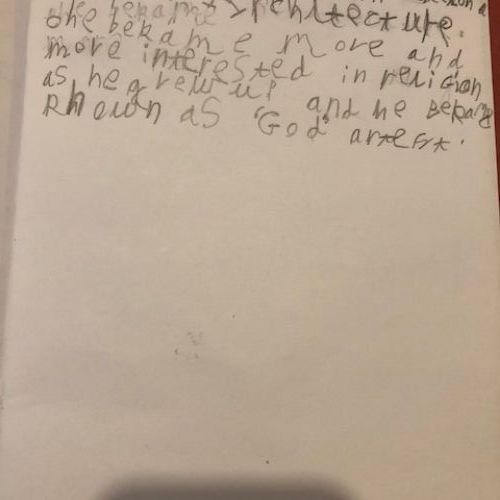 arkhitecture.
bekame more and
more interested in religion
as he grew up and he bekame
Known as "God" artest.